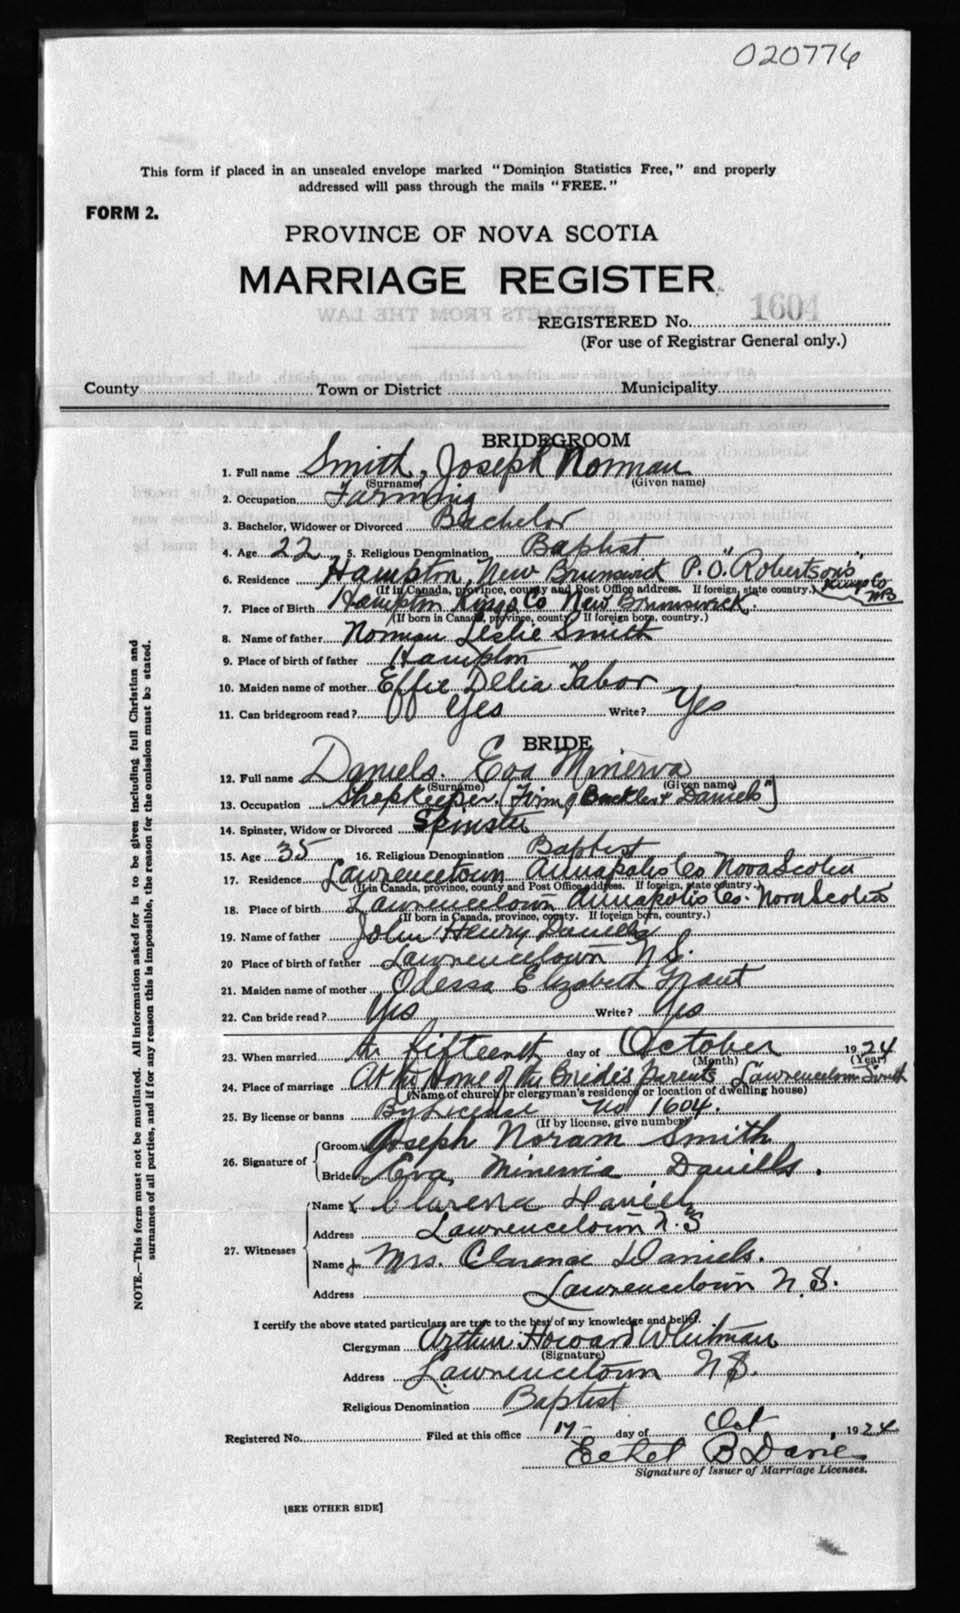 020776
This form if placed in an unsealed envelope marked "Dominion Statistics Free," and properly
addressed will pass through the mails "FREE."
FORM 2.
PROVINCE OF NOVA SCOTIA
MARRIAGE REGISTER
REGISTERED No. 1604
(For use of Registrar General only.)
County Town or District Municipality
BRIDEGROOM
1. Full name Smith, Joseph Norman
(Surname) (Given name)
2. Occupation Farming
3. Bachelor, Widower or Divorced Bachelor
4. Age 22 5. Religious Denomination Baptist
6. Residence Hampton, New Brunswick P.O. "Robertson's"
(If in Canada, province, county and Post Office address. If foreign, state country.) Kings Co NB
7. Place of Birth Hampton Kings Co New Brunswick.
(If born in Canada, province, county. If foreign born, country.)
8. Name of father Norman Leslie Smith
9. Place of birth of father Hampton
10. Maiden name of mother Effie Delia Tabor
11. Can bridegroom read? Yes Write? Yes
BRIDE
12. Full name Daniels. Eva Minerva
(Surname) (Given name)
13. Occupation Shopkeeper. [Firm of Buckler & Daniels"]
14. Spinster, Widow or Divorced Spinster
15. Age 35 16. Religious Denomination Baptist
17. Residence Lawrencetown Annapolis Co Nova Scotia
(If in Canada, province, county and Post Office address. If foreign, state country.)
18. Place of birth Lawrencetown Annapolis Co. Nova Scotia
(If born in Canada, province, county. If foreign born, country.)
19. Name of father John Henry Daniels
20 Place of birth of father Lawrencetown N.S.
21. Maiden name of mother Odessa Elizabeth Grant
22. Can bride read? Yes Write? Yes
23. When married fifteenth day of October 1924
(Month) (Year)
24. Place of marriage At the Home of the Bride's Parents Lawrencetown South
(Name of church or clergyman's residence or location of dwelling house)
25. By license or banns By License No 1604.
(If by license, give number)
26. Signature of Groom Joseph Noram Smith
Bride Eva Minervia Daniells.
27. Witnesses Name Clarence Daniels
Address Lawrencetown N.S
Name Mrs. Clarence Daniels.
Address Lawrencetown N.S.
I certify the above stated particulars are true to the best of my knowledge and belief.
Clergyman Arthur Howard Whitman
(Signature)
Address Lawrencetown N.S.
Religious Denomination Baptist
Registered No. Filed at this office 17- day of Oct 1924
Ethel B Davies
Signature of Issuer of Marriage Licenses.
[SEE OTHER SIDE]
NOTE.—This form must not be mutilated. All information asked for is to be given including full Christian and
surnames of all parties, and if for any reason this is impossible, the reason for the omission must be stated.